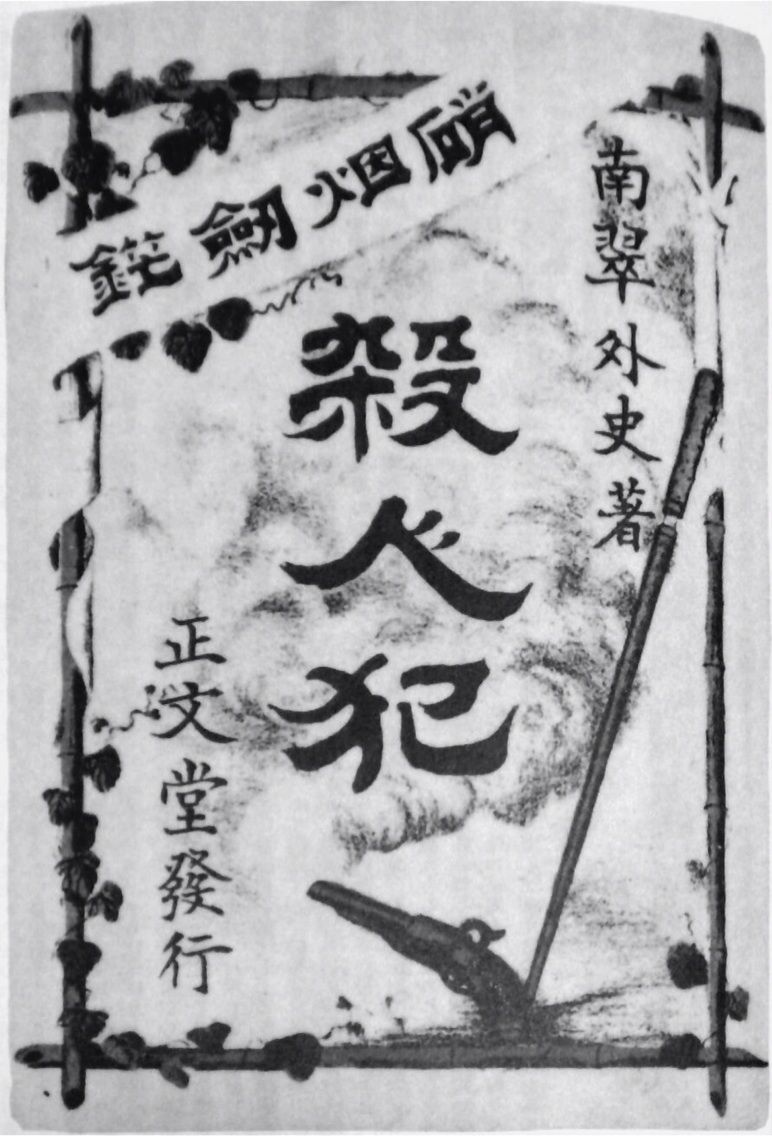 硝烟劒鋩
南翠外史著
殺人犯
正文堂發行